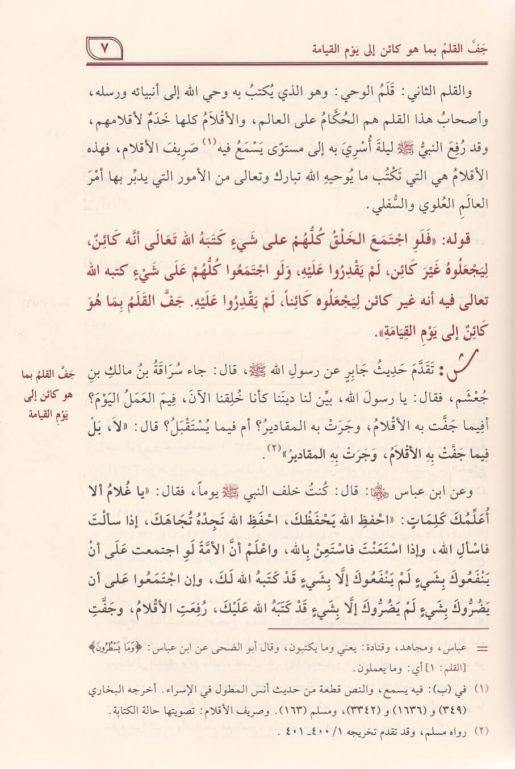 جَفَّ القلمُ بما هو كائن إلى يَوْم القيامة
٧
والقلم الثاني: قَلَمُ الوحي: وهو الذي يُكتبُ به وحي الله إلى أنبيائه ورسله،
وأصحابُ هذا القلم هم الحُكَّامُ على العالم، والأقْلامُ كلها خَدَمٌ لأقلامهم،
وقد رُفِعَ النبيُّ ﷺ ليلةَ أُسْرِيَ به إلى مستوًى يَسْمَعُ فيه(١) صَرِيفَ الأقلام، فهذه
الأقلامُ هي التي تَكْتُب ما يُوحيهِ الله تبارك وتعالى من الأمور التي يدبِّر بها أمْرَ
العالَمِ العُلوي والسُّفلي.
قوله: «فَلَو اجْتَمَعَ الخَلْقُ كُلُّهُمْ على شَيءٍ كَتَبَهُ الله تَعَالَى أنَّه كَائِنٌ،
لِيَجْعَلُوهُ غَيْرَ كائِن، لَمْ يَقْدِروا عَلَيْهِ، وَلَو اجتَمَعُوا كُلُّهُمْ عَلَى شَيْءٍ كتبه الله
تعالى فيه أنه غير كائن لِيَجْعَلُوه كائناً، لَمْ يَقْدِرُوا عَلَيْهِ. جَفَّ القَلَمُ بِمَا هُوَ
كَائِنٌ إلى يَوْمِ القِيَامَةِ».
جَفَّ القلمُ بما
هو كائن إلى
يَوْمِ القيامة
ش: تَقَدَّمَ حَدِيثُ جابِرٍ عن رسولِ الله ﷺ، قال: جاء سُرَاقَةُ بنُ مالكِ بنِ
جُعْشَم، فقال: يا رسولَ الله، بيِّن لنا ديننَا كأنا خُلِقنا الآنَ، فِيمَ العَمَلُ اليَوْمَ؟
أفيما جَفَّت به الأقْلامُ، وجَرَتْ به المقاديرُ؟ أم فيما يُسْتَقْبَلُ؟ قال: «لاَ، بَلْ
فِيما جَفَّتْ بِهِ الأقْلامُ، وَجَرَتْ بِهِ المقَادِيرُ»(٢).
وعن ابن عباس رضي الله عنهما: قال: كُنتُ خلف النبي ﷺ يوماً، فقال: «يا غُلامُ ألا
أُعَلِّمُكَ كَلِمَاتٍ: «احْفظِ الله يَحْفَظْكَ، احْفَظِ الله تَجِدْهُ تُجَاهَكَ، إذا سألْتَ
فاسْألِ الله، وإذا اسْتَعَنْتَ فاسْتَعِنْ بِالله، واعْلَمْ أنَّ الأمَّةَ لَو اجتمعت عَلَى أنْ
يَنْفَعُوكَ بِشَيءٍ لَمْ يَنْفَعُوكَ إلَّا بِشَيءٍ قَدْ كَتَبَهُ الله لَكَ، وإن اجْتَمَعُوا على أن
يَضُرُّوكَ بِشَيءٍ لَمْ يَضُرُّوكَ إلَّا بِشَيءٍ قَدْ كَتَبَهُ الله عَلَيْكَ، رُفِعَتِ الأقْلامُ، وجَفَّتِ
= عباس، ومجاهد، وقتادة: يعني وما يكتبون، وقال أبو الضحى عن ابن عباس: ﴿وَمَا يَسْطُرُونَ﴾
[القلم: ١] أي: وما يعملون.
(١) في (ب): فيه يسمع، والنص قطعة من حديث أنس المطول في الإسراء. أخرجه البخاري
(٣٤٩) و (١٦٣٦) و (٣٣٤٢)، ومسلم (١٦٣). وصريف الأقلام: تصويتها حالة الكتابة.
(٢) رواه مسلم، وقد تقدم تخريجه ١/ ٤٠٠ - ٤٠١.